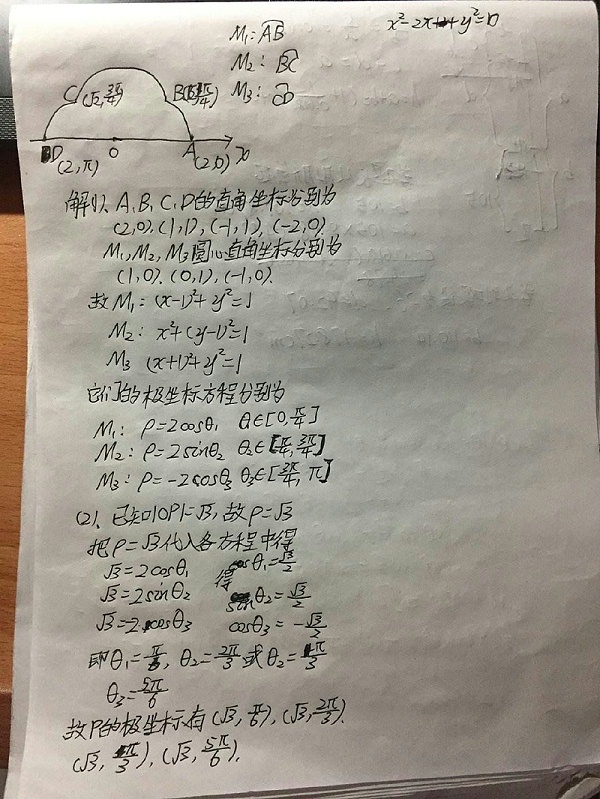 M₁: AB
x²-2x+y²=0
M₂: BC
M₃: CD
C(√2, 3π/4)
B(√2, π/4)
D(2,π)
O
A(2,0)
x
解(1), A、B、C、D的直角坐标分别为
(2,0), (1,1), (-1,1), (-2,0)
M₁, M₂, M₃圆心直角坐标分别为
(1,0), (0,1), (-1,0)
故M₁: (x-1)²+y²=1
M₂: x²+(y-1)²=1
M₃ (x+1)²+y²=1
它们的极坐标方程分别为
M₁: ρ=2cosθ₁ θ₁∈[0, π/4]
M₂: ρ=2sinθ₂ θ₂∈[π/4, 3π/4]
M₃: ρ=-2cosθ₃ θ₃∈[3π/4, π]
(2), 已知|OP|=√3, 故ρ=√3
把ρ=√3代入各方程中得
√3=2cosθ₁ 得 cosθ₁=√3/2
√3=2sinθ₂ sinθ₂=√3/2
√3=-2cosθ₃ cosθ₃=-√3/2
即θ₁=π/6, θ₂=2π/3或θ₂=π/3
θ₃=5π/6
故P的极坐标有(√3, π/6), (√3, 2π/3),
(√3, π/3), (√3, 5π/6).